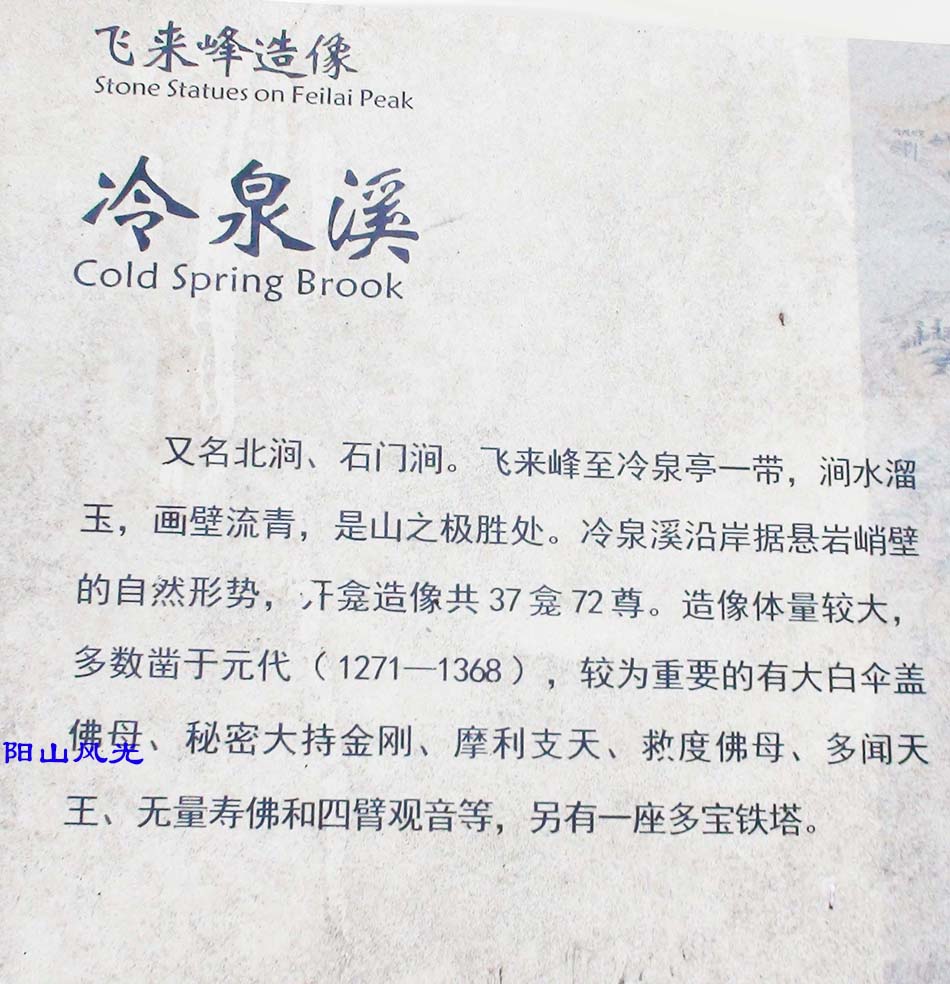 飞来峰造像
Stone Statues on Feilai Peak
冷泉溪
Cold Spring Brook
又名北涧、石门涧。飞来峰至冷泉亭一带，涧水溜
玉，画壁流青，是山之极胜处。冷泉溪沿岸据悬岩峭壁
的自然形势，开龛造像共 37 龛 72 尊。造像体量较大，
多数凿于元代（1271—1368），较为重要的有大白伞盖
佛母、秘密大持金刚、摩利支天、救度佛母、多闻天
王、无量寿佛和四臂观音等，另有一座多宝铁塔。
阳山风光